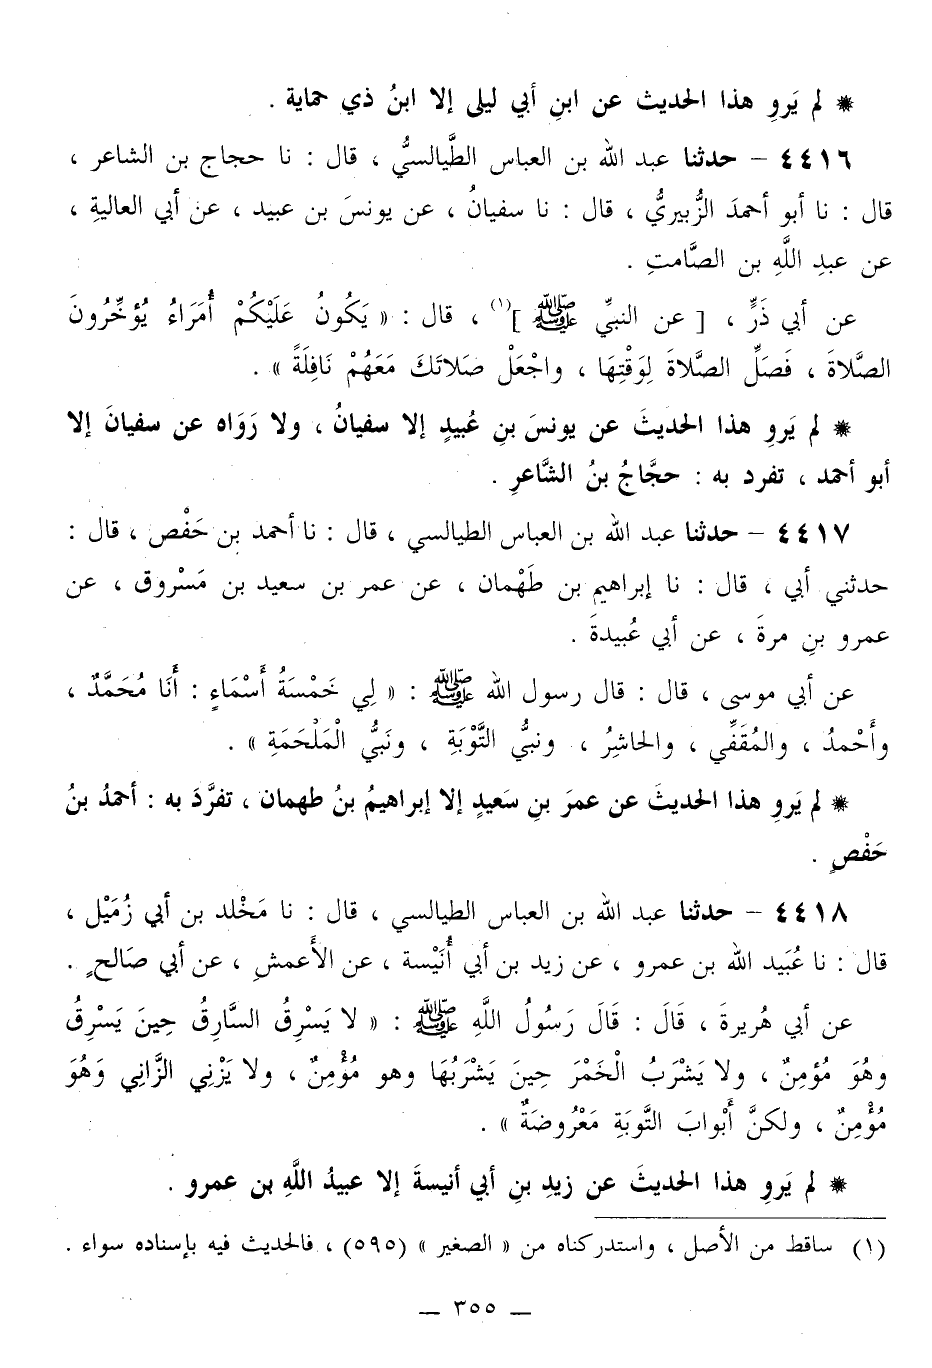 * لم يَروِ هذا الحديث عن ابنِ أبي ليلى إلا ابنُ ذي حماية .
٤٤١٦ – حدثنا عبد الله بن العباس الطَّيالسيُّ ، قال : نا حجاج بن الشاعر ،
قال : نا أبو أحمدَ الزُّبيريُّ ، قال : نا سفيانُ ، عن يونسَ بن عبيد ، عن أبي العاليةِ ،
عن عبدِ اللَّهِ بن الصَّامتِ .
عن أبي ذَرٍّ ، [ عن النبيِّ ﷺ ](١) ، قال : « يَكُونُ عَلَيْكُمْ أُمَرَاءُ يُؤخِّرُونَ
الصَّلاةَ ، فَصَلِّ الصَّلاةَ لِوَقْتِهَا ، واجْعَلْ صَلاتَكَ مَعَهُمْ نَافِلَةً » .
* لم يَروِ هذا الحديثَ عن يونسَ بنِ عُبيدٍ إلا سفيانُ ، ولا رَوَاه عن سفيانَ إلا
أبو أحمد ، تفرد به : حجَّاجُ بنُ الشَّاعرِ .
٤٤١٧ – حدثنا عبد الله بن العباس الطيالسي ، قال : نا أحمد بن حَفْص ، قال :
حدثني أبي ، قال : نا إبراهيم بن طَهْمان ، عن عمر بن سعيد بن مَسْروق ، عن
عمرو بنِ مرةَ ، عن أبي عُبيدةَ .
عن أبي موسى ، قال : قال رسول الله ﷺ : « لِي خَمْسَةُ أَسْمَاءٍ : أَنَا مُحَمَّدٌ ،
وأَحْمدُ ، والمُقَفِّي ، والحاشِرُ ، ونبيُّ التَّوْبَةِ ، ونَبيُّ الْمَلْحَمَةِ » .
* لم يَروِ هذا الحديثَ عن عمرَ بنِ سَعيدٍ إلا إبراهيمُ بنُ طهمان ، تفرَّدَ به : أحمدُ بنُ
حَفْصٍ .
٤٤١٨ – حدثنا عبد الله بن العباس الطيالسي ، قال : نا مَخْلد بن أبي زُمَيْل ،
قال : نا عُبَيد الله بن عمرو ، عن زيد بن أبي أُنَيْسة ، عن الأَعمشِ ، عن أبي صَالحٍ .
عن أبي هُريرةَ ، قَالَ : قَالَ رَسُولُ اللَّهِ ﷺ : « لا يَسْرِقُ السَّارِقُ حِينَ يَسْرِقُ
وهُوَ مُؤمِنٌ ، ولا يَشْرَبُ الْخَمْرَ حِينَ يَشْرَبُهَا وهو مُؤْمِنٌ ، ولا يَزْنِي الزَّانِي وَهُوَ
مُؤْمِنٌ ، ولكنَّ أَبْوابَ التَّوبَةِ مَعْرُوضَةٌ » .
* لم يَروِ هذا الحديثَ عن زيدِ بنِ أبي أنيسةَ إلا عبيدُ اللَّهِ بن عمرو .
(١) ساقط من الأصل ، واستدركناه من « الصغير » (٥٩٥) ، فالحديث فيه بإسناده سواء .
— ٣٥٥ —